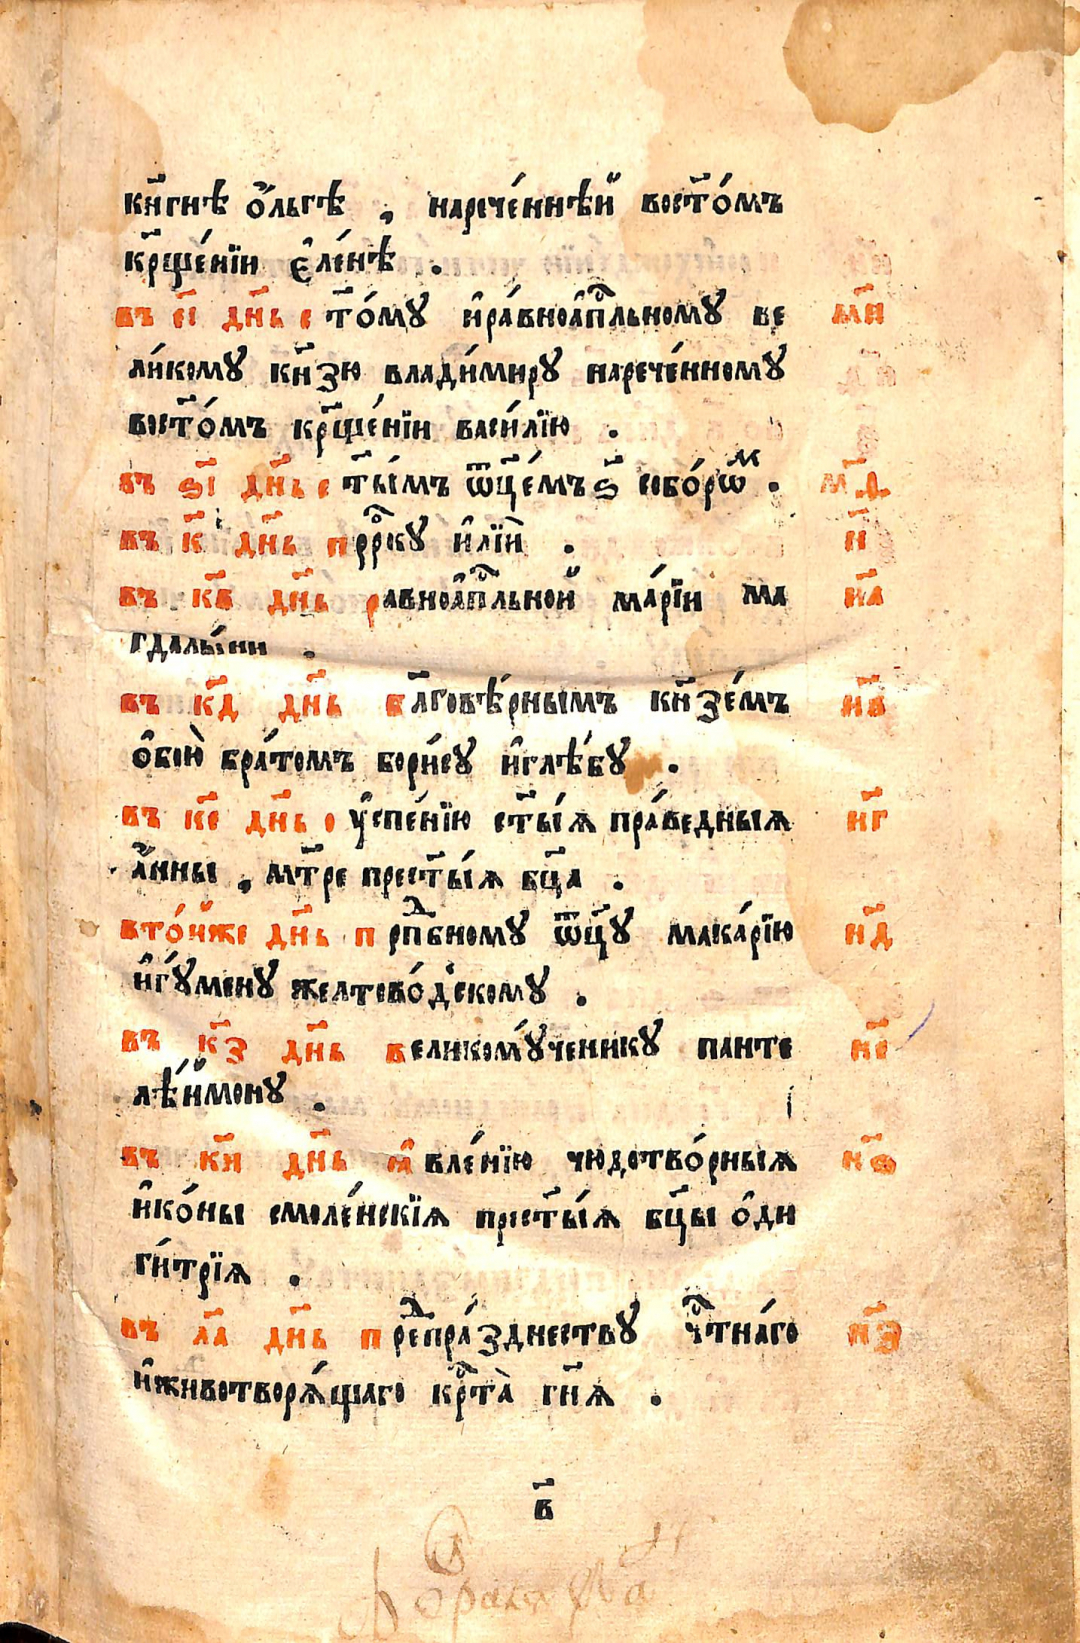 кн҃гнѣ ѻ҆́льгѣ , нарече́ннѣй вост҃о́мъ
кр҃ще́нїи є҆ле́нѣ .
въ є҃і дн҃ь с҃то́му и҆равноа҆пⷭ҇льному ве мн҃
ли́кому кн҃зю влади́миру нарече́нному
восто҃́мъ кр҃ще́нїи васи́лїю .
въ ѕ҃і дн҃ь с҃ты́мъ ѿц҃е́мъ ѕ҃ собо́рѡⷨ . мѳ҃
въ к҃ дн҃ь прⷪ҇рку и҆лїѝ . н҃
въ кв҃ дн҃ь равноа҆пⷭ҇льной ма́рїи ма на҃
гдалы́ни .
въ кд҃ дн҃ь бл҃говѣ́рнымъ кн҃зе́мъ нв҃
ѻ҆боѝ бра́томъ бори́су и҆глѣ́бу .
въ ке҃ дн҃ь о у҆спе́нїю ст҃ы́ѧ пра́ведныѧ нг҃
а҆́нны , мт҃ре прест҃ы́ѧ бц҃а .
вто́йже дн҃ь прпⷣбному ѿц҃у мака́рїю нд҃
и҆гу́мену желтово́дскому .
въ кз҃ дн҃ь великому́ченику панте не҃
лѣ́ймону .
въ ки҃ дн҃ь ꙗ҆вле́нїю чюдотво́рныѧ нѕ҃
и҆ко́ны смоле́нскїѧ прест҃ы́ѧ бц҃ы ѻ҆ди
ги́трїѧ .
въ ла҃ дн҃ь преⷣпра́зднеству чⷭ҇тна́го нз҃
и҆животворѧ́щаго крⷭ҇та̀ гн҃ѧ .
в҃